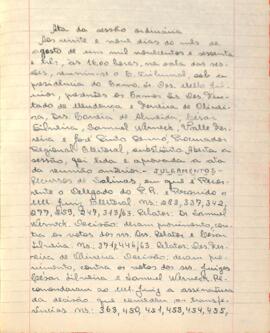 Ata da sessão ordinária
Aos vinte e nove dias do mês de
agosto de um mil novecentos e sessenta
e três, às 16,00 horas, na sala das ses-
sões, reuniu-se o E. Tribunal, sob a
presidência do Exmo. Sr. Des.
presentes os Exmos. Srs. Des.
de Mendonça e Ferreira de Olivei-
ra, Drs. Corrêa de Almeida, César
Silveira, Samuel Werneck, Valle Fer-
reira e José Procurador
Regional Eleitoral, Aberta a
sessão, foi lida e aprovada a ata
da reunião anterior. JULGAMENTOS-
Recursos de Salinas em que é Recor-
rente o Delegado do P.R. e Recorrido o
MM. Juiz Eleitoral ns. 283, 337, 342,
313/63. Relator: Dr. Samuel
Werneck. Decisão: Deram provimento, con-
tra os votos dos srs. Drs. Relator e César
Silveira. Ns: 371 446/63. Relator: Des. Ferrei-
ra de Oliveira. Decisão: Deram pro-
vimento, contra os votos dos srs. Juízes
César Silveira e Samuel Werneck. Re-
comendaram ao MM. Juiz a assinatura
da decisão que as transferên-
cias. Ns: 369, 450, 451, 453, 454, 455,